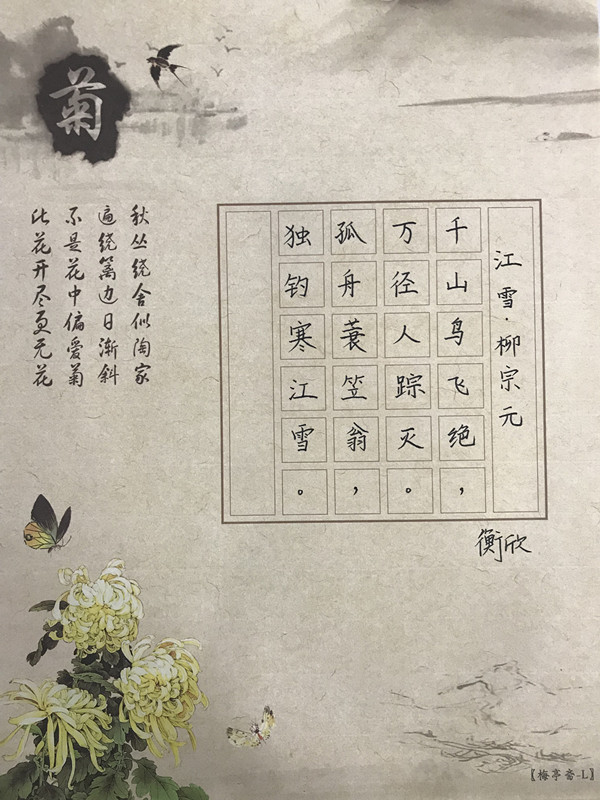 江雪·柳宗元
千山鸟飞绝，
万径人踪灭。
孤舟蓑笠翁，
独钓寒江雪。
衡欣
菊
秋丛绕舍似陶家
遍绕篱边日渐斜
不是花中偏爱菊
此花开尽更无花
【梅亭斋-L】